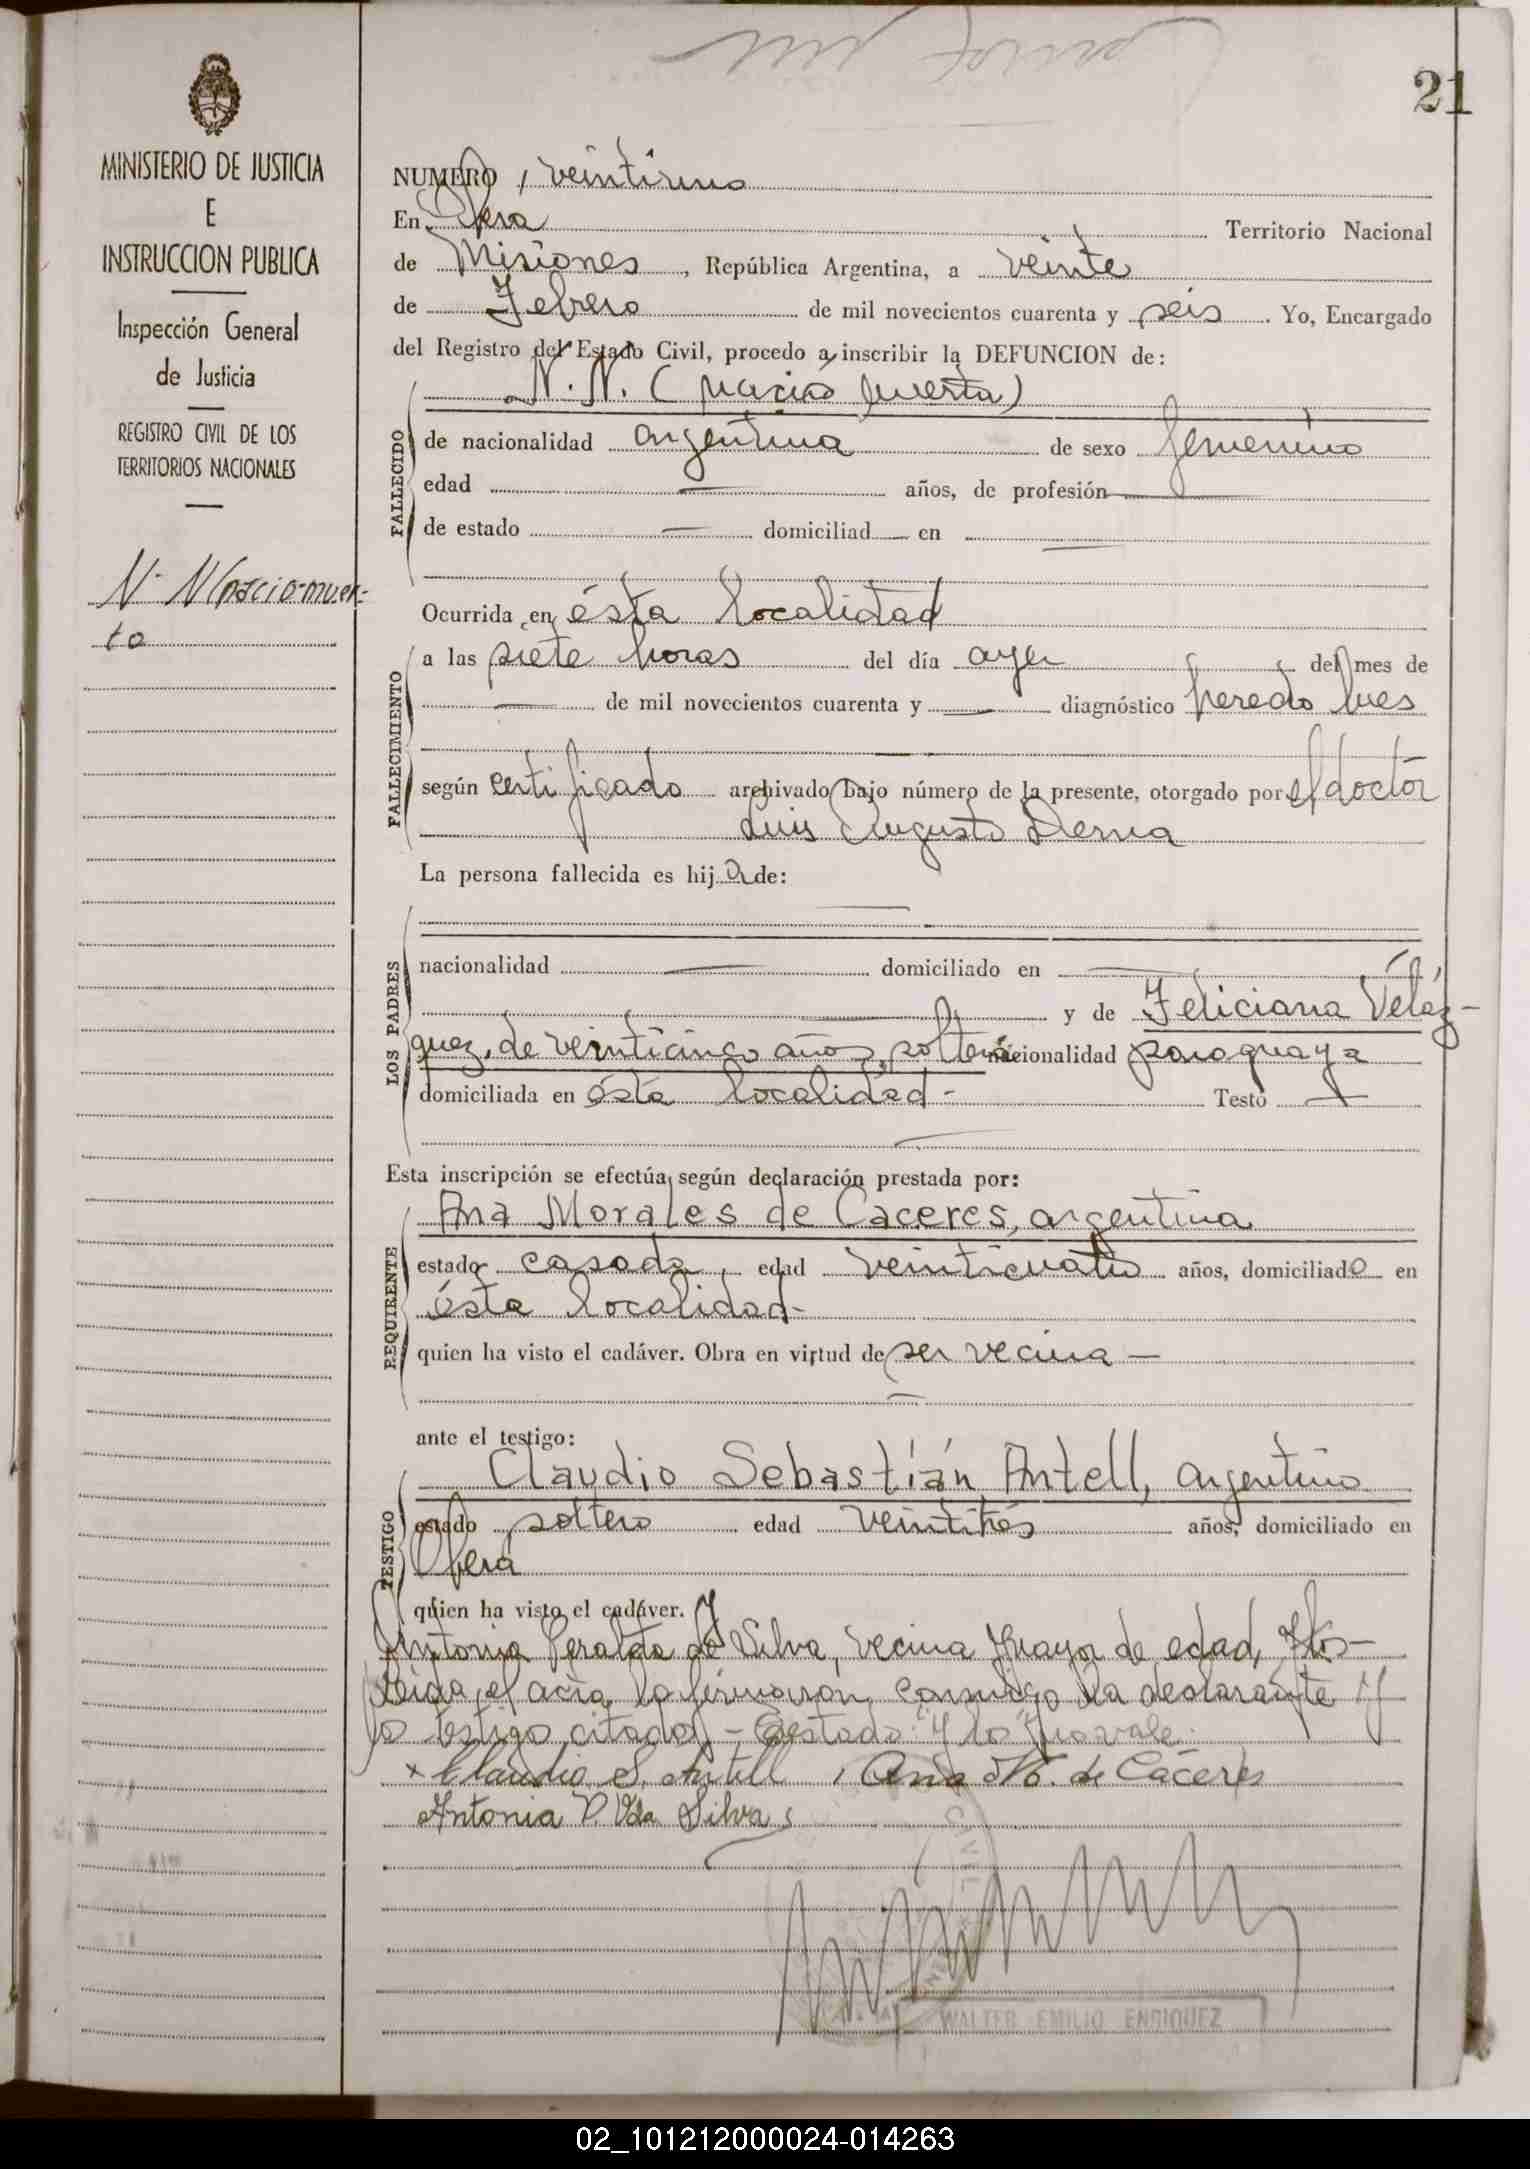 21
MINISTERIO DE JUSTICIA
E
INSTRUCCION PUBLICA
Inspección General
de Justicia
REGISTRO CIVIL DE LOS
TERRITORIOS NACIONALES
N. N (nació muer-
ta
NUMERO, veintiuno
En Oberá Territorio Nacional
de Misiones, República Argentina, a veinte
de Febrero de mil novecientos cuarenta y seis. Yo, Encargado
del Registro del Estado Civil, procedo a inscribir la DEFUNCION de:
N. N. (nació muerta)
FALLECIDO
de nacionalidad argentina de sexo femenino
edad — años, de profesión —
de estado — domiciliad — en —
Ocurrida en ésta localidad
FALLECIMIENTO
a las siete horas del día ayer del mes de
— de mil novecientos cuarenta y — diagnóstico heredo lues
—
según certificado archivado bajo número de la presente, otorgado por el doctor
Luis Augusto Derna
La persona fallecida es hija de:
—
LOS PADRES
nacionalidad — domiciliado en —
— y de Feliciana Veláz-
quez, de veinticinco años, soltera nacionalidad paraguaya
domiciliada en ésta localidad- Testó —
—
Esta inscripción se efectúa según declaración prestada por:
Ana Morales de Caceres, argentina
REQUIRENTE
estado casada, edad veinticuatro años, domiciliada en
ésta localidad-
quien ha visto el cadáver. Obra en virtud de ser vecina —
—
ante el testigo:
Claudio Sebastián Antell, argentino
TESTIGO
estado soltero edad veintitrés años, domiciliado en
Oberá
quien ha visto el cadáver. Y
Antonia Peralta de Silva, vecina y mayor de edad,
leída el acta, la firmaron conmigo la declarante y
lo testigo citado - Testado: "y lo" no vale.
x Claudio S. Antell, Ana M. de Cáceres
Antonia P. Vda Silva
WALTER EMILIO ENRIQUEZ
02_101212000024-014263